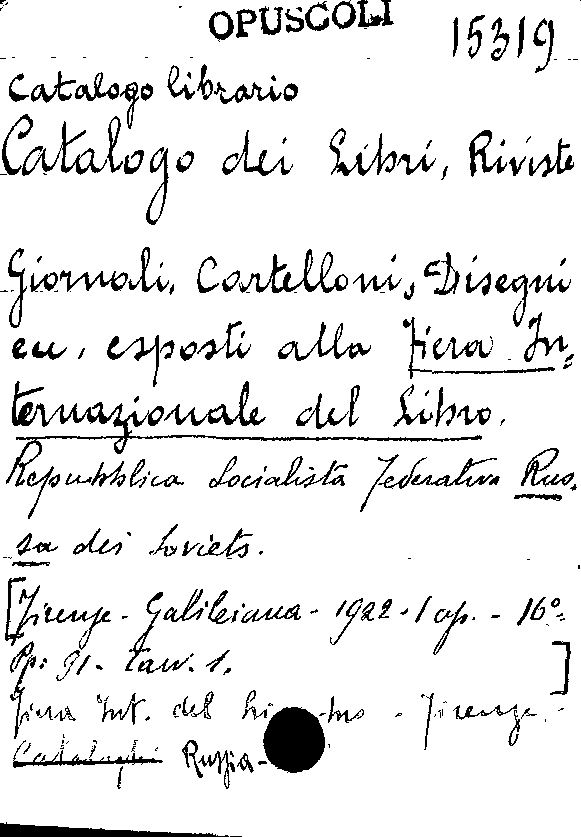 OPUSCOLI
15319
Catalogo librario
Catalogo dei Libri, Riviste
Giornali, Cartelloni, Disegni
ecc, esposti alla Fiera In=
ternazionale del Libro.
Repubblica Socialista Federativa Rus.
sa dei Soviets.
[Firenze - Galileiana - 1922 - 1 op. - 16º-
Pp: 91 - tav. 1. ]
Fiera Int. del Libro - Firenze -
Cataloghi Russia -